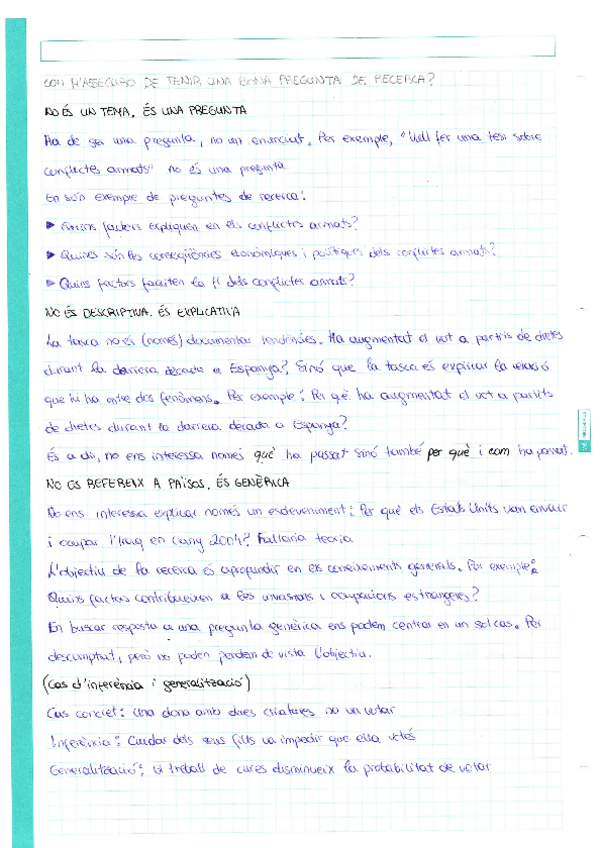 COM M'ASSEGURO DE TENIR UNA BONA PREGUNTA DE RECERCA?
NO ÉS UN TEMA, ÉS UNA PREGUNTA
Ha de ser una pregunta, no un enunciat. Per exemple, "Vull fer una tesi sobre
conflictes armats" no és una pregunta
En són exemple de preguntes de recerca:
▶ Quins factors expliquen en els conflictes armats?
▶ Quines són les conseqüències econòmiques i polítiques dels conflictes armats?
▶ Quins factors faciliten la fi dels conflictes armats?
NO ÉS DESCRIPTIVA, ÉS EXPLICATIVA
La tasca no és (només) documentar tendències. Ha augmentat el vot a partits de dretes
durant la darrera dècada a Espanya? Sinó que la tasca és explicar la relació
que hi ha entre dos fenòmens. Per exemple: Per què ha augmentat el vot a partits
de dretes durant la darrera dècada a Espanya?
És a dir, no ens interessa només què ha passat sinó també per què i com ha passat.
NO ES REFEREIX A PAÏSOS, ÉS GENÈRICA
No ens interessa explicar només un esdeveniment: Per què els Estats Units van envair
i ocupar l'Iraq en l'any 2004? Fallaria teoria
L'objectiu de la recerca és aprofundir en els coneixements generals. Per exemple:
Quins factors contribueixen a les invasions i ocupacions estrangeres?
En buscar resposta a una pregunta genèrica ens podem centrar en un sol cas. Per
descomptat, però no podem perdem de vista l'objectiu.
(Cas d'inferència i generalització)
Cas concret: Una dona amb dues criatures no va votar
Inferència: Cuidar dels seus fills va impedir que ella votés
Generalització: El treball de cures disminueix la probabilitat de votar